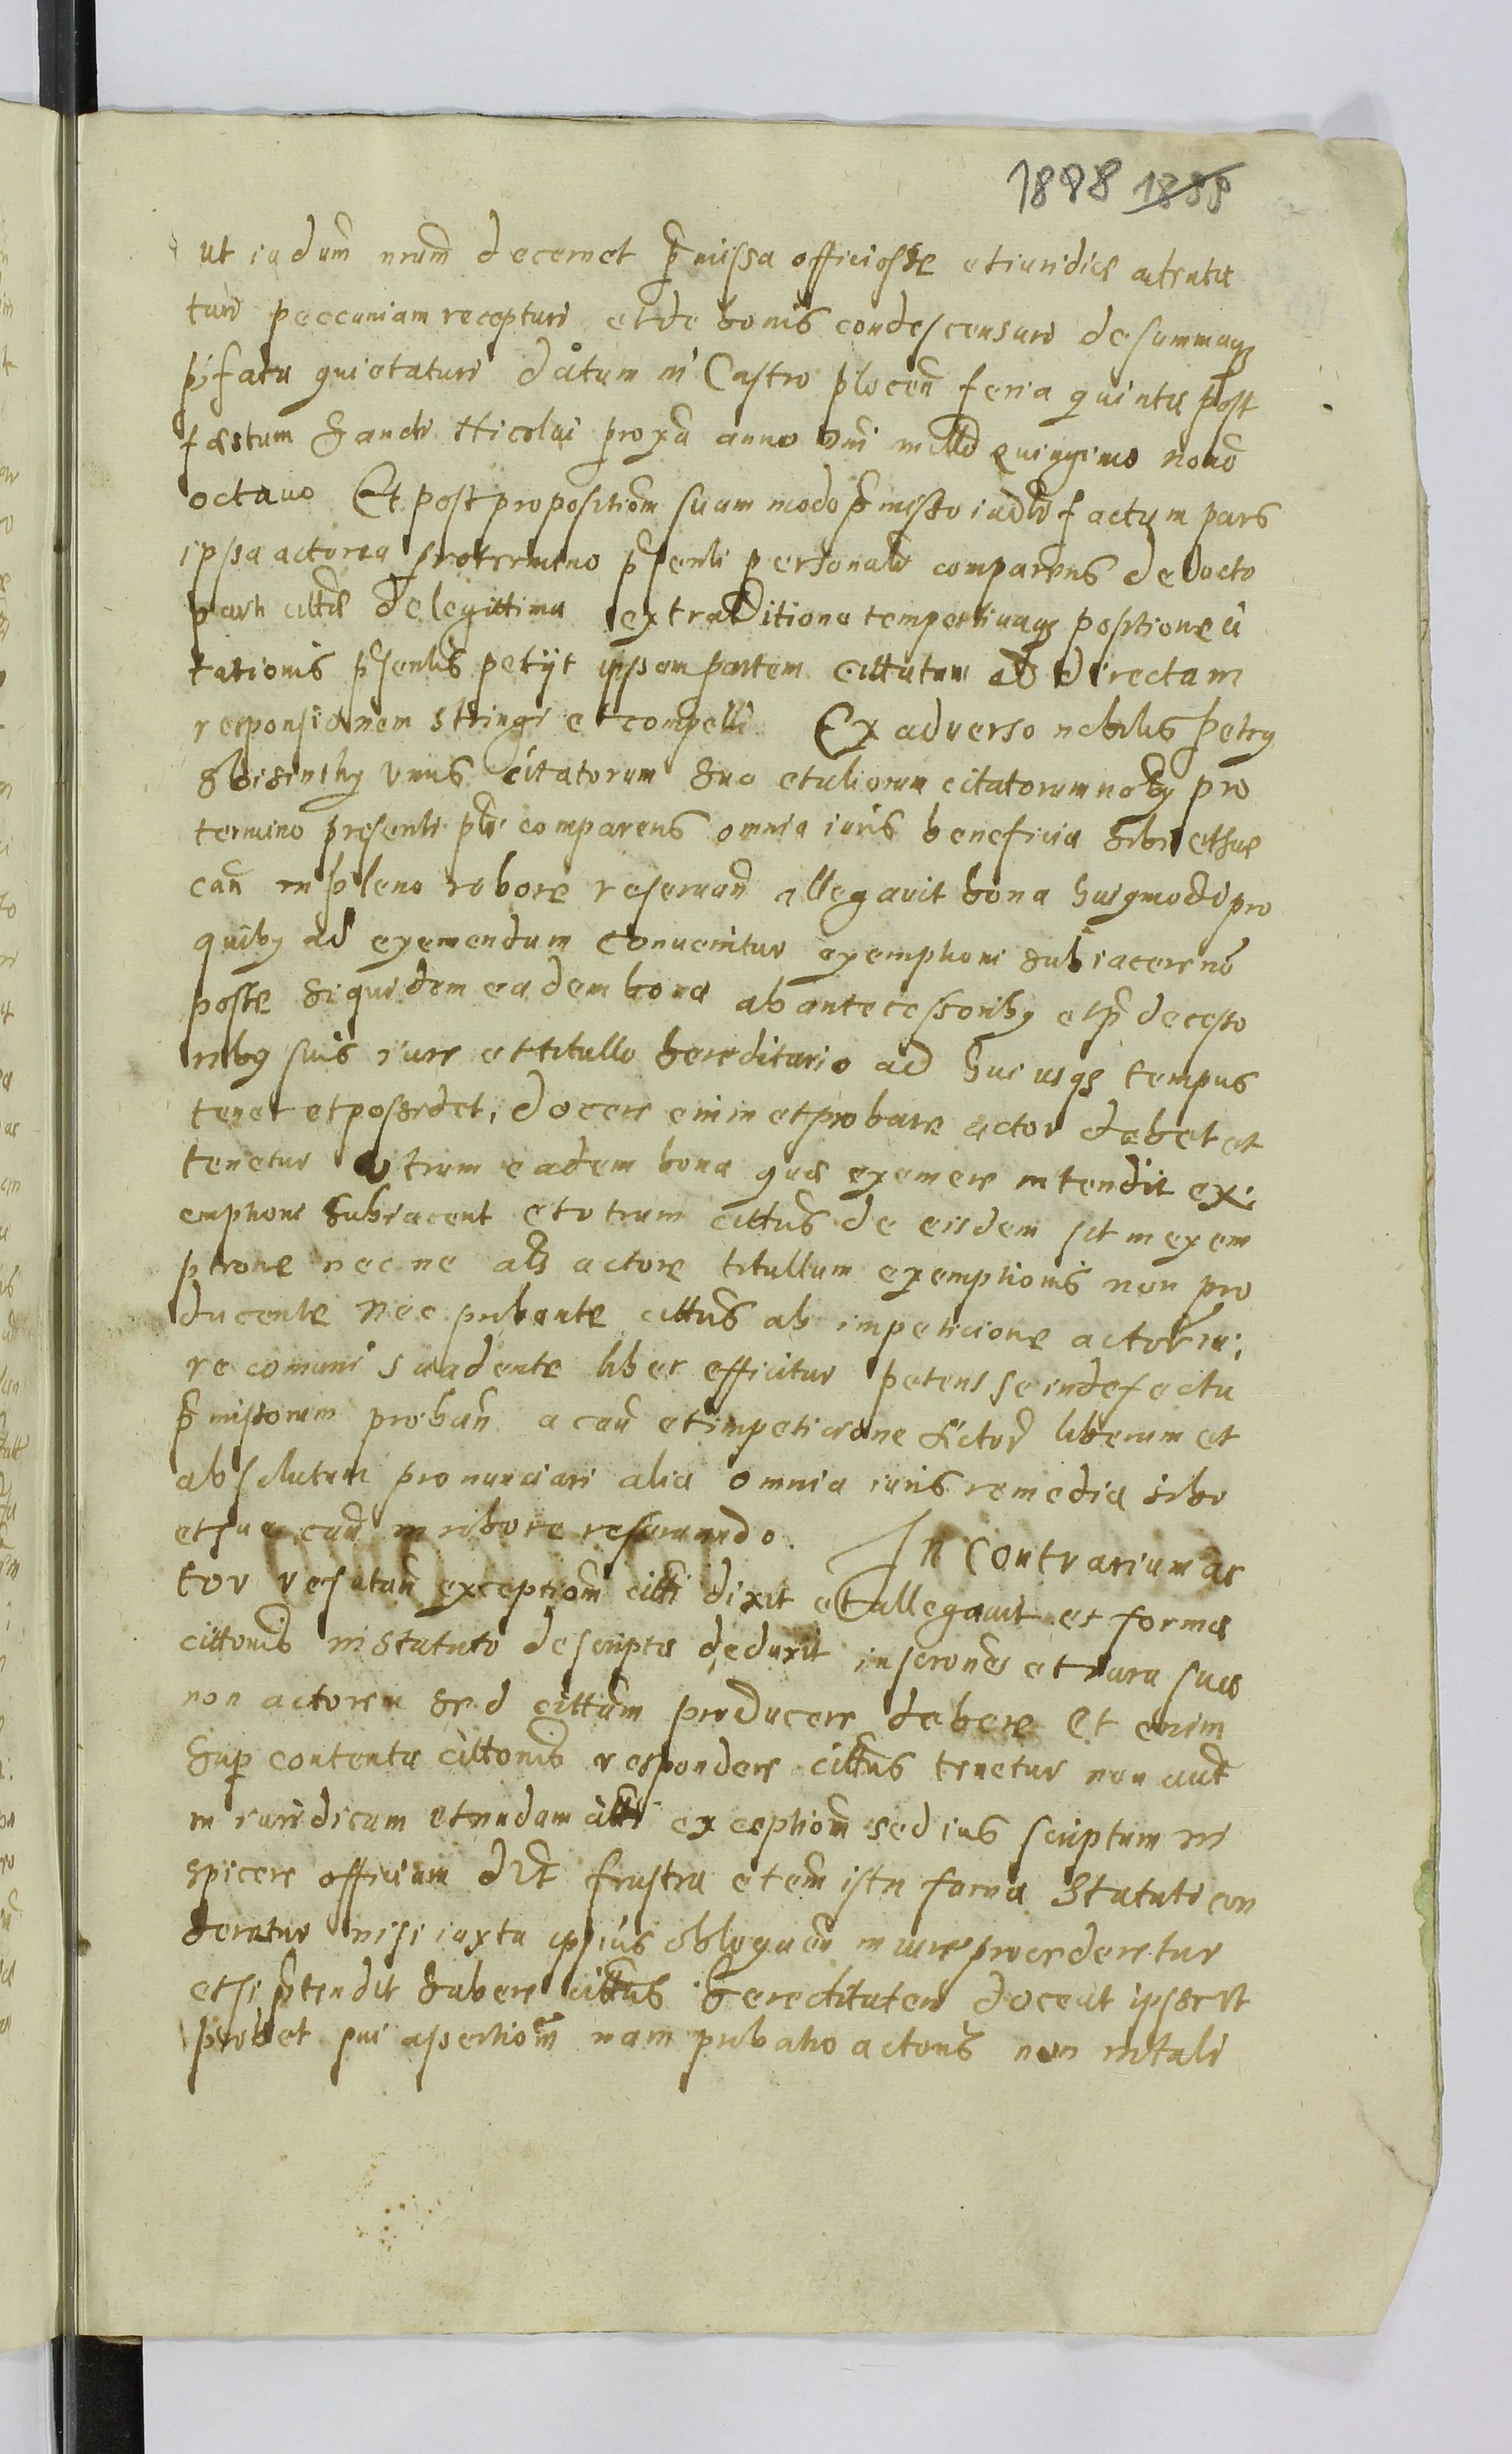 1888 1888
ut iudium nrum decernet pmissa officiosse et iuridice attentu
turi peccuniam recepturi et de bonis condescensuri de summaqz
pfata quietaturi datum in Castro plocen feria quinta post
fæstum Sancti Nicolai proxa anno dni millo quingimo nono
octauo Et post propositiom suam modo pmisso iudlr factum pars
ipsa actorea pro termino psenti personalr comparens de docto
parti citte de legittima extraditione tempestiuaqz positione ci
tationis psentis petijt ipsam partem cittatam ad directam
responsionem stringi et compelli Ex aduerso nobilis petrg
unus citatorum suo et aliorum citatorum noie pro
termino presenti plr comparens omnia iuris beneficia sibi et suæ
can in pleno robore reseruan allegauit bona huigmodi pro
quibg ad exemendum conuenitur exemptioni subiacere no
posse siquidem eadem bona ab antecessoribg et pdecesso
ribg suis iure et titullo hereditario ad huc usqz tempus
tenet et possedet, docere enim et probare actor debet et
tenetur utrum eadem bona quæ exemere intendit ex
emptioni subiacent et utrum cittus de eisdem sit in exem
ptione nec ne als actore titullum exemptionis non pro
ducente nec pribante cittus ab impeticione actoris iu
re comuni suadente liber efficitur petens se in defectu
pmissorum proban a cau et impeticione Actor liberum et
absolutum pronunciari alia omnia iuris remedia sibi
et suæ cau in robore reseruando. In Contrarium ac
tor refutan exceptiom citti dixit et allegauit ex forma
cittonis in statuto descripta deduxit inscriones et iura sua
non actorem sed cittum producere debere Et enim
Sup contenta cittonis respondere cittus tenetur non aut
in iuridicam et nudam citti exceptiom sed ius scriptum in
spicere officium dzt frustra etem ista forma Statuti con
deratur nisi iuxta ipsius obloquen in iure procederetur
et si ptendit habere cittus hereditatem doceat ipse et
probet sui assertiom nam pribatio actoris non in tali